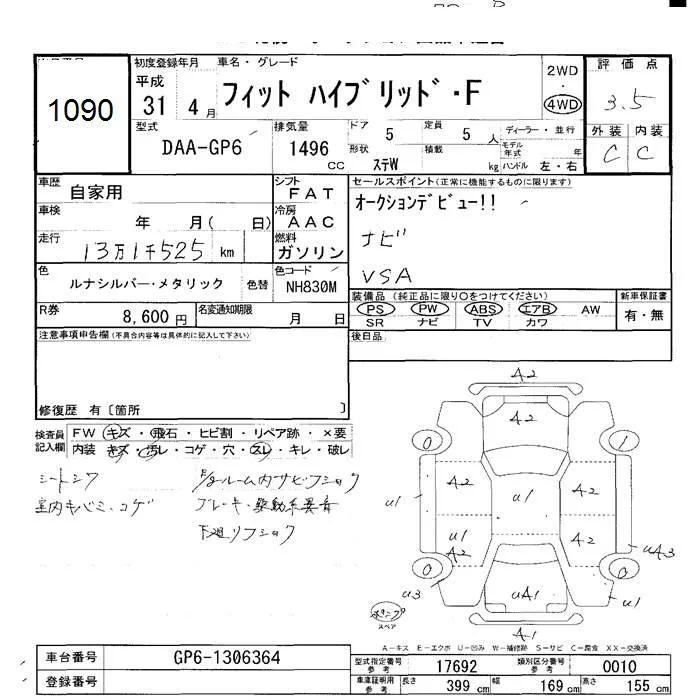 1090
初度登録年月 車名・グレード
平成 31 4月 フィット ハイブリッド・F
2WD ・ 4WD
評価点 3.5
外装 内装
C C
型式 DAA-GP6
排気量 1496 CC
ドア 5 定員 5 人
形状 ステW 積載 kg
ディーラー・並行
モデル年式 年
ハンドル 左・右
車歴 自家用
シフト FAT
車検 年 月( 日)
冷房 AAC
走行 13万1千525 km
燃料 ガソリン
色 ルナシルバー・メタリック 色替
色コード NH830M
R券 8,600円 名変通知期限 月 日
セールスポイント(正常に機能するものに限ります)
オークションデビュー!!
ナビ
VSA
装備品 (純正品に限り○をつけてください) 新車保証書
PS PW ABS エアB AW 有・無
SR ナビ TV カワ
後日品
注意事項申告欄(不具合内容等は具体的に記入して下さい)
修復歴 有〔箇所 〕
検査員記入欄
FW キズ・飛石・ヒビ割・リペア跡・×要
内装 キズ・汚レ・コゲ・穴・スレ・キレ・破レ
シートシワ
室内キバミ・コゲ
ルーム内サビフショク
ブレーキ・駆動系異音
下廻リフショク
A2
A2
0 1
A2 A2
u1 u1 u1
u1
A2 A2
uA3
0 0
u3 uA1 u1
A1
スペア
A-キズ E-エクボ U-凹み W-補修跡 S-サビ C-腐食 XX-交換済
車台番号 GP6-1306364
登録番号
型式指定番号 参考 17692 類別区分番号 参考 0010
車庫証明用 参考 長さ 399 cm 幅 169 cm 高さ 155 cm